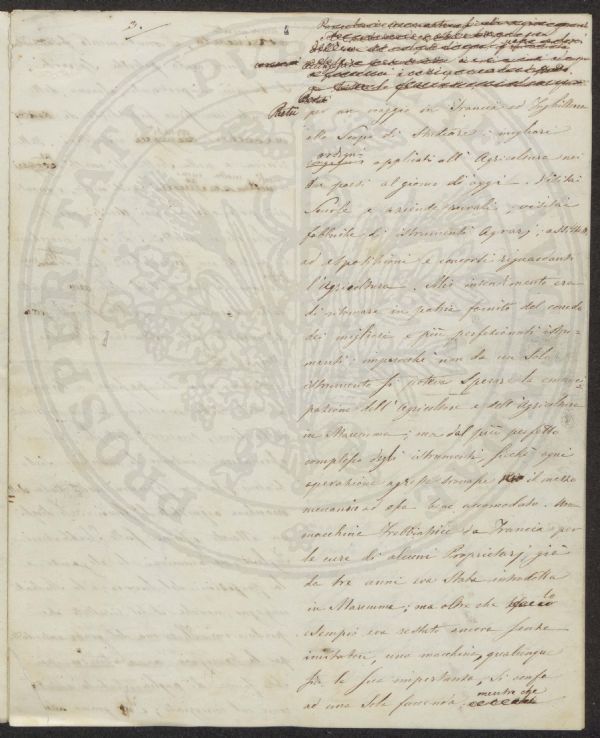 3.
Partii
per un viaggio in Francia ed Inghilterra
allo scopo di studiare i migliori
ordigni
applicati all'Agricoltura nei
due paesi al giorno di oggi. Visitai
Scuole e aziende rurali, visitai
fabbriche di istrumenti Agrarj, assistei
ad esposizioni e concorsi riguardanti
l'Agricoltura. Mio intendimento era
di ritornare in patria fornito del corredo
dei migliori e più perfezionati istru-
menti: imperocchè non da un solo
istrumento si poteva sperar la emanci-
pazione dell'Agricoltore e dell'Agricoltura
in Maremma; ma dal più perfetto
complesso degli istrumenti sicchè ogni
operazione agreste trovasse il mezzo
meccanico ad essa bene accomodato. Una
macchina Trebbiatrice da Francia per
le cure di alcuni Proprietarj già
da tre anni era stata introdotta
in Maremma; ma oltre che lo
esempio era restato ancora senza
imitatori, una macchina, qualunque
sia la sua importanza, si confa
ad una sola faccenda, mentre che
PROSPERITATI PUBLICAE